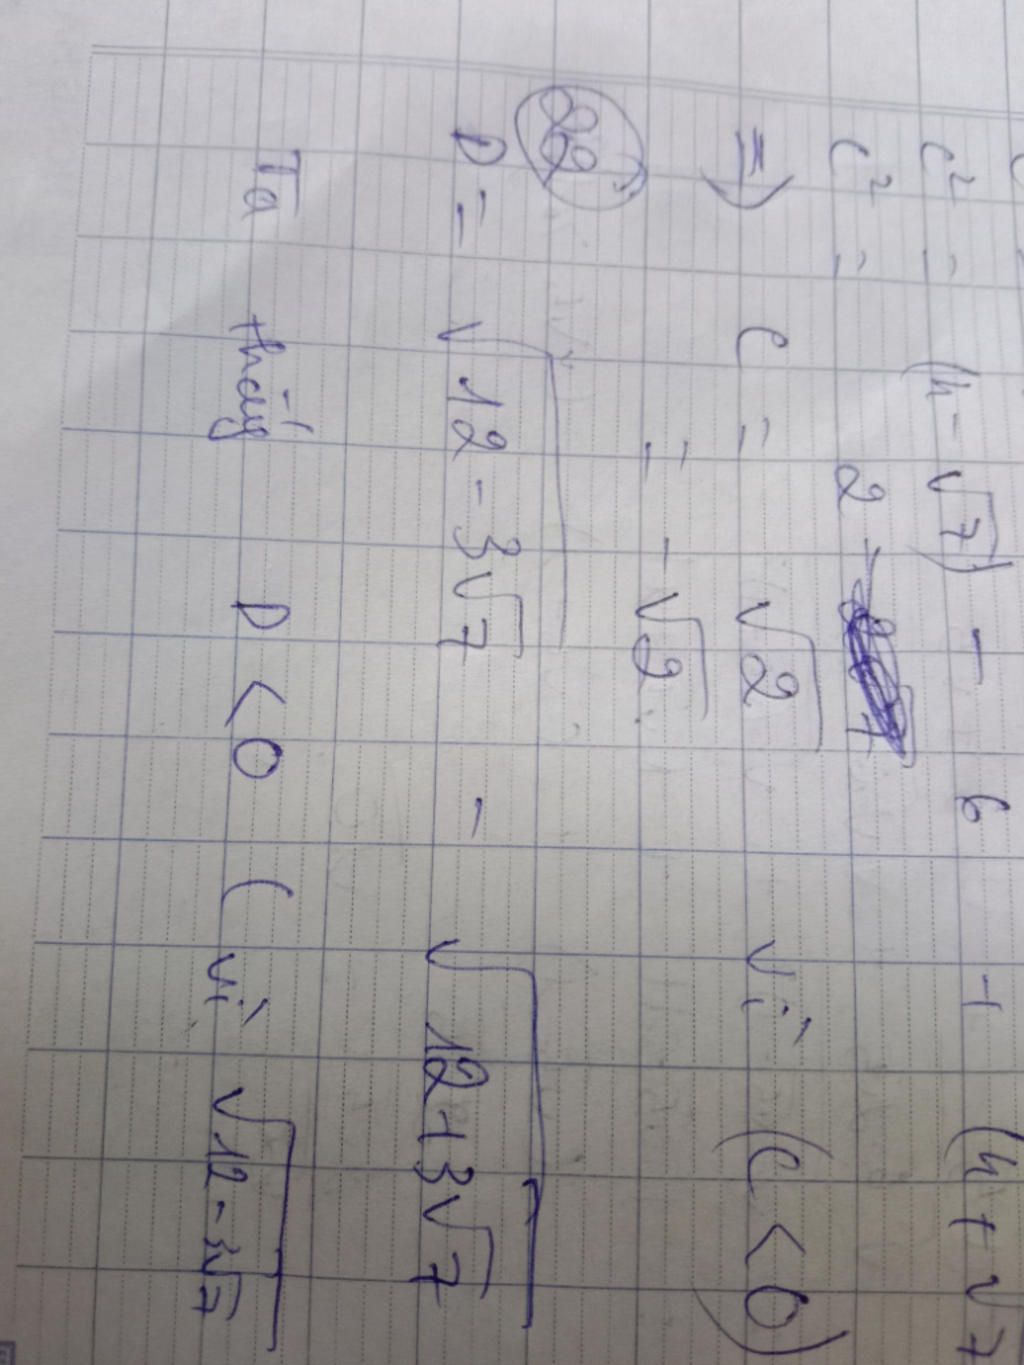 C² = (4 - √7) - 6 + (4 + √7
C² = 2
=> C = √2 vì (C < 0)
= - √2
D = √12 - 3√7 - √12 + 3√7
Ta thấy D < 0 ( vì √12 - 3√7